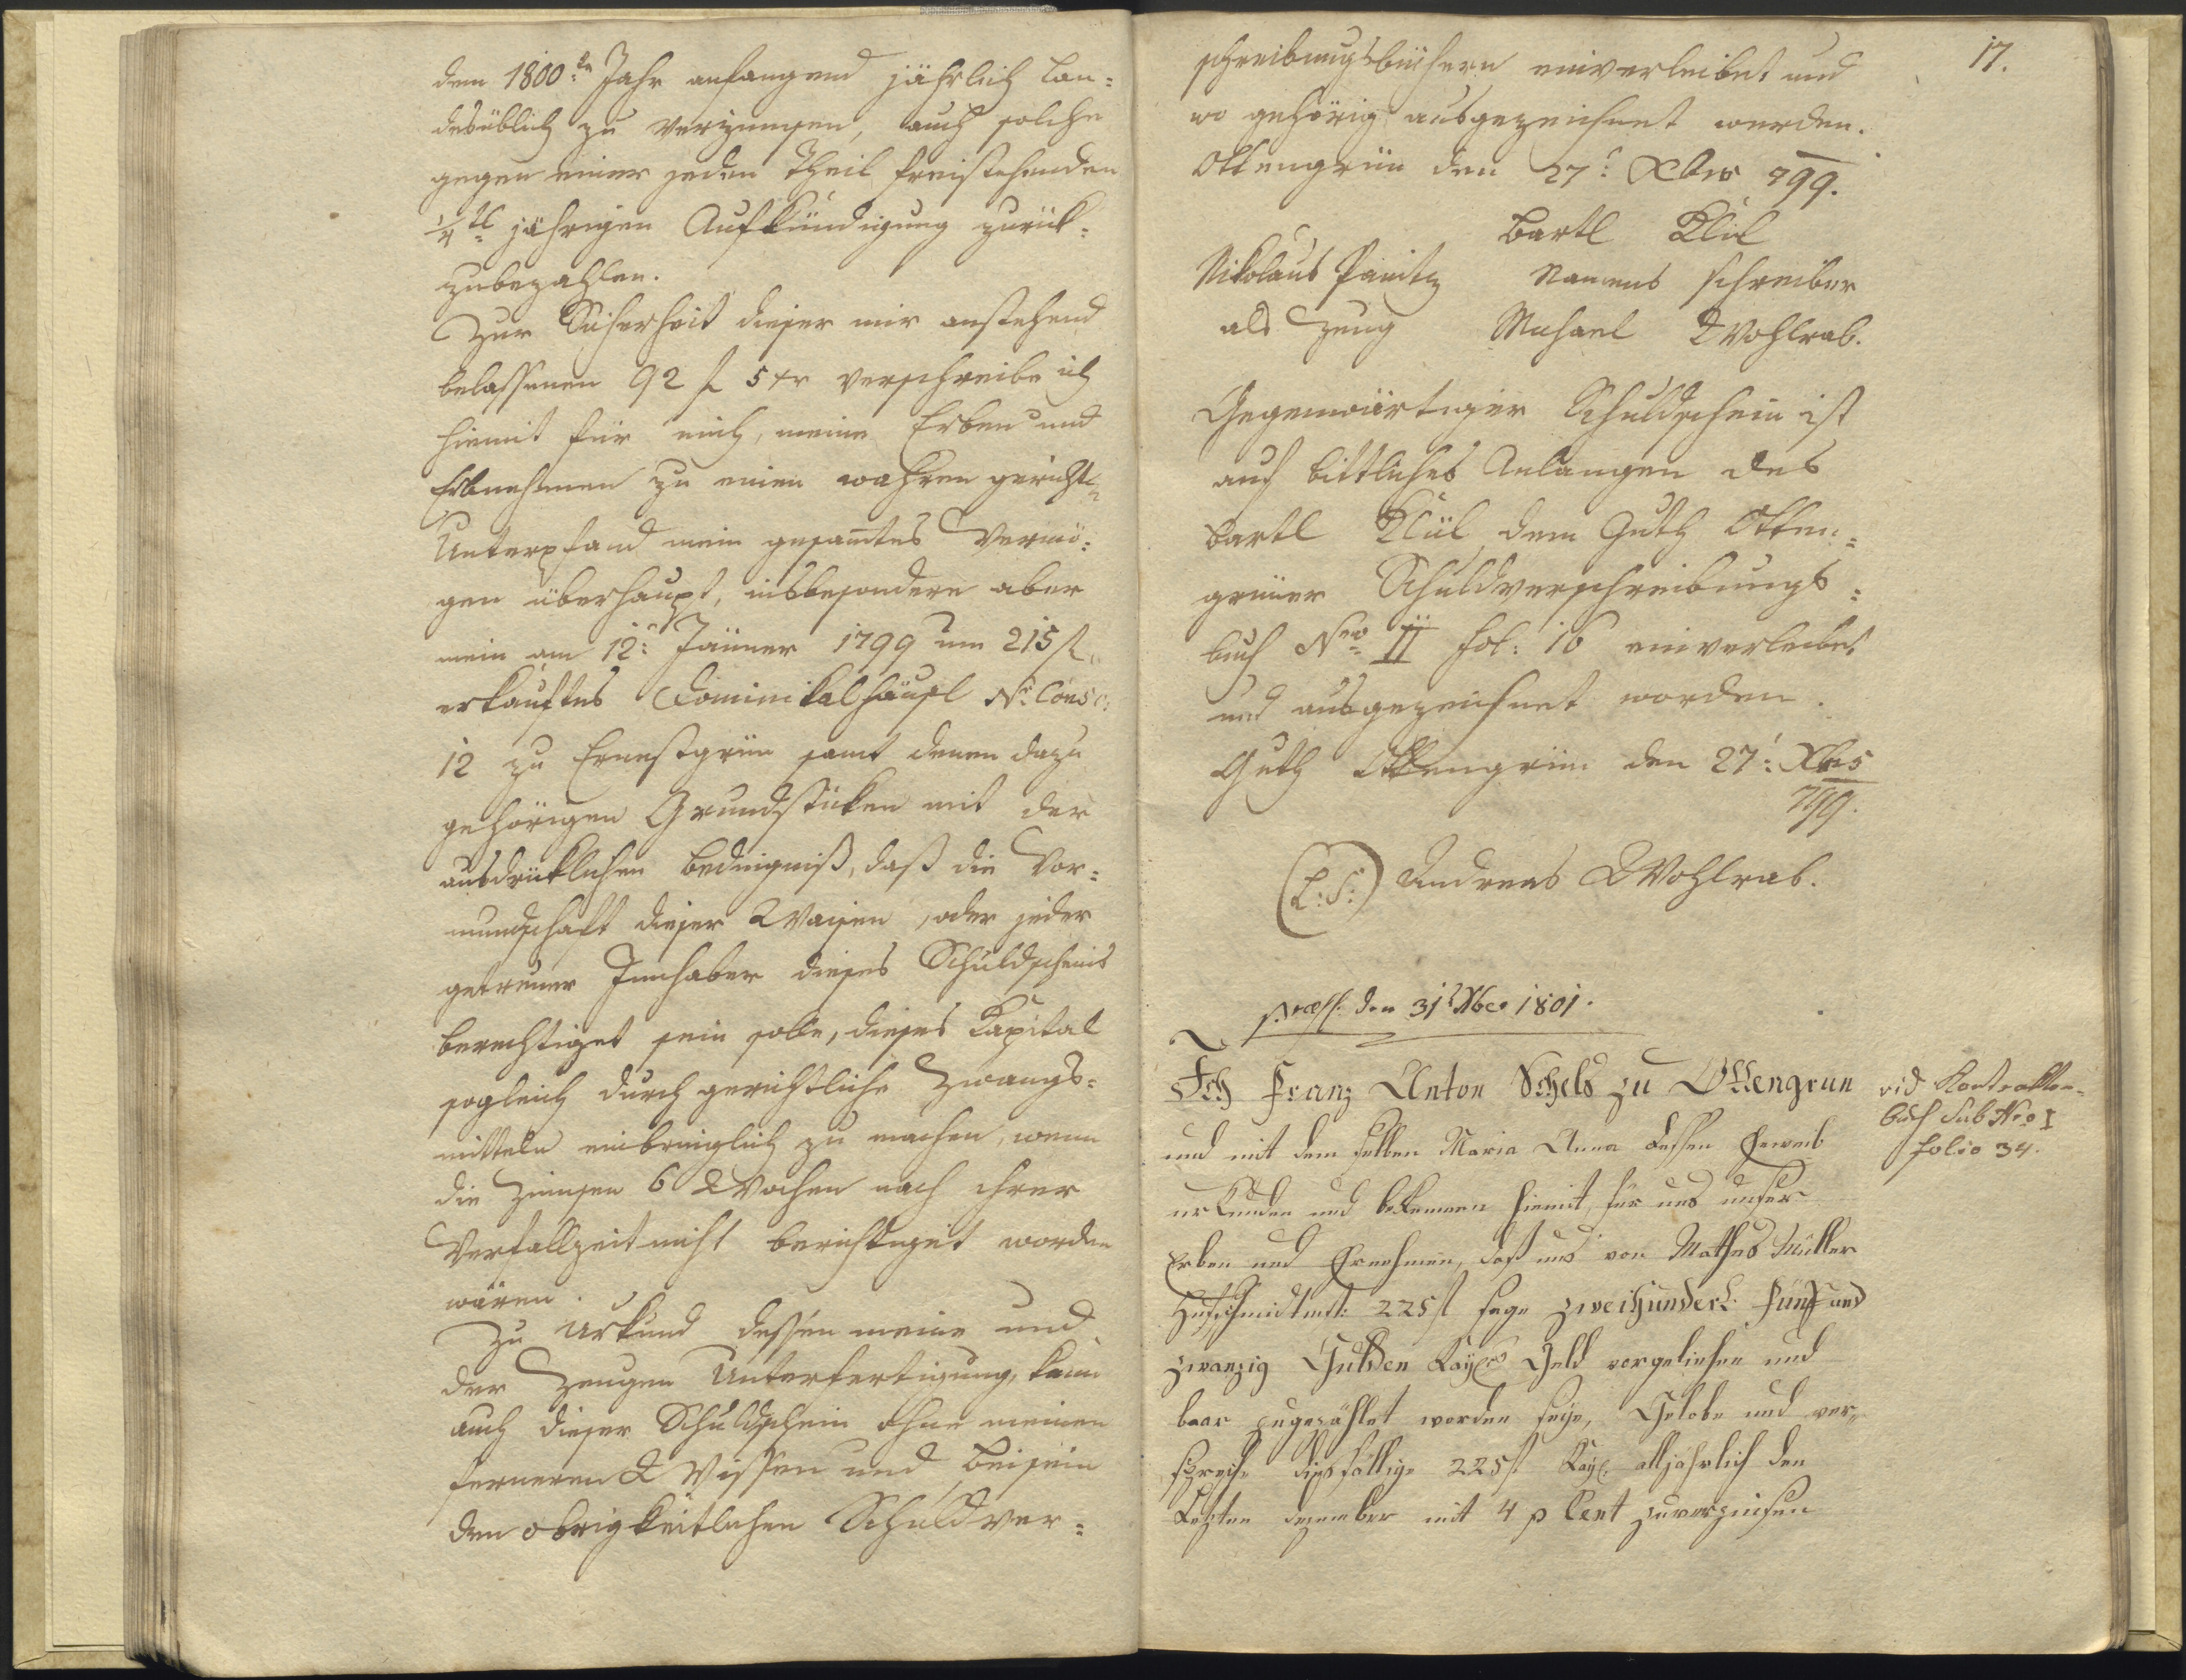 dem 1800:ten Jahr anfangend jährlich lan=
desüblich zu verzinnsen, auch solche
gegen einer jeden Theil freistehenden
1/4tl jährigen Aufkündigung zurük=
zubezahlen.
Zur Sicherheit dieser mir anstehend
belassenen 92 f 5 xr verschreibe ich
hiemit für mich, meine Erben und
Erbnehmen zu einen wahren gericht:
Unterpfand mein gesamtes Vermö=
gen überhaupt, insbesondere aber
mein am 12: Jänner 1799 um 215 f.
erkauftes Dominikalhäusl N: Consc:
12 zu Ernestgrün samt denen dazu
gehörigen Grundstüken mit der
ausdrüklichen Bedingniß, daß die Vor=
mundschaft dieser Waisen, oder jeder
getreuer Innhaber dieses Schuldscheins
berechtiget sein solle, dieses Kapital
sogleich durch gerichtliche Zwangs=
mitteln einbringlich zu machen, wenn
die Zinnsen 6 Wochen nach ihrer
Verfallzeit nicht berichtiget worden
wären.
Zu Urkund dessen meine und
der Zeugen Unterfertigung, kann
auch dieser Schuldschein ohne meinen
ferneren Wissen und Beisein
den obrigkeitlichen Schuldver=
17.
schreibungsbüchern einverleibet und
wo gehörig ausgezeichnet werden.
Ottengrün den 27: Xber 799.
Bartl Klül
Nikolaus Panitz Namens schreiber
als Zeug Michael Wohlrab.
Gegenwärtiger Schuldschein ist
auf bittliches Anlangen des
Bartl Klül dem Guth Otten=
grüner Schuldverschreibungs=
buch Nro II fol: 16 einverleibet
und ausgezeichnet worden.
Guth Ottengrün den 27: Xbris
799.
(L:S:) Andreas Wohlrab.
præss: den 31t Xber 1801.
Ich Franz Anton Schels zu Ottengrün
vid Kontrakten=
buch Sub Nro I
folio 34.
und mit dem selben Maria Anna dessen Eheweib
urkunden und bekennen hiemit, für uns unser
Erben und Ernehmen, daß uns von Mathes Müller
Hufschmidtmst: 225 f sage zweihundert fünf und
zwanzig Gulden Kayl Geld vorgeliehen und
baar zugezählet worden seye, Gelobe und ver=
spreche diesfällige 225 f Kayl. alljährlich den
Letzten dezember mit 4 p Cent zuverzinsen